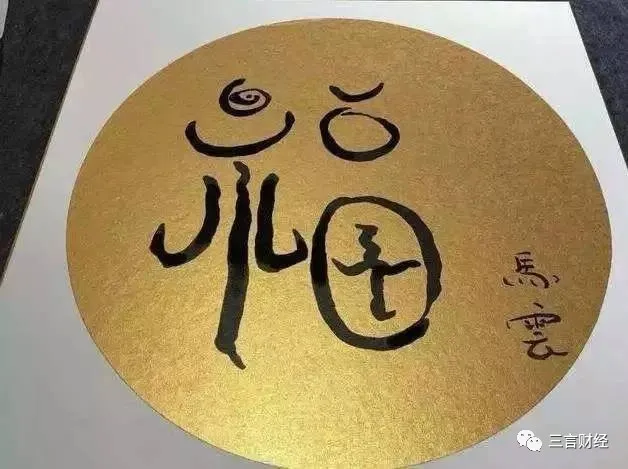 福
馬雲
三言财经